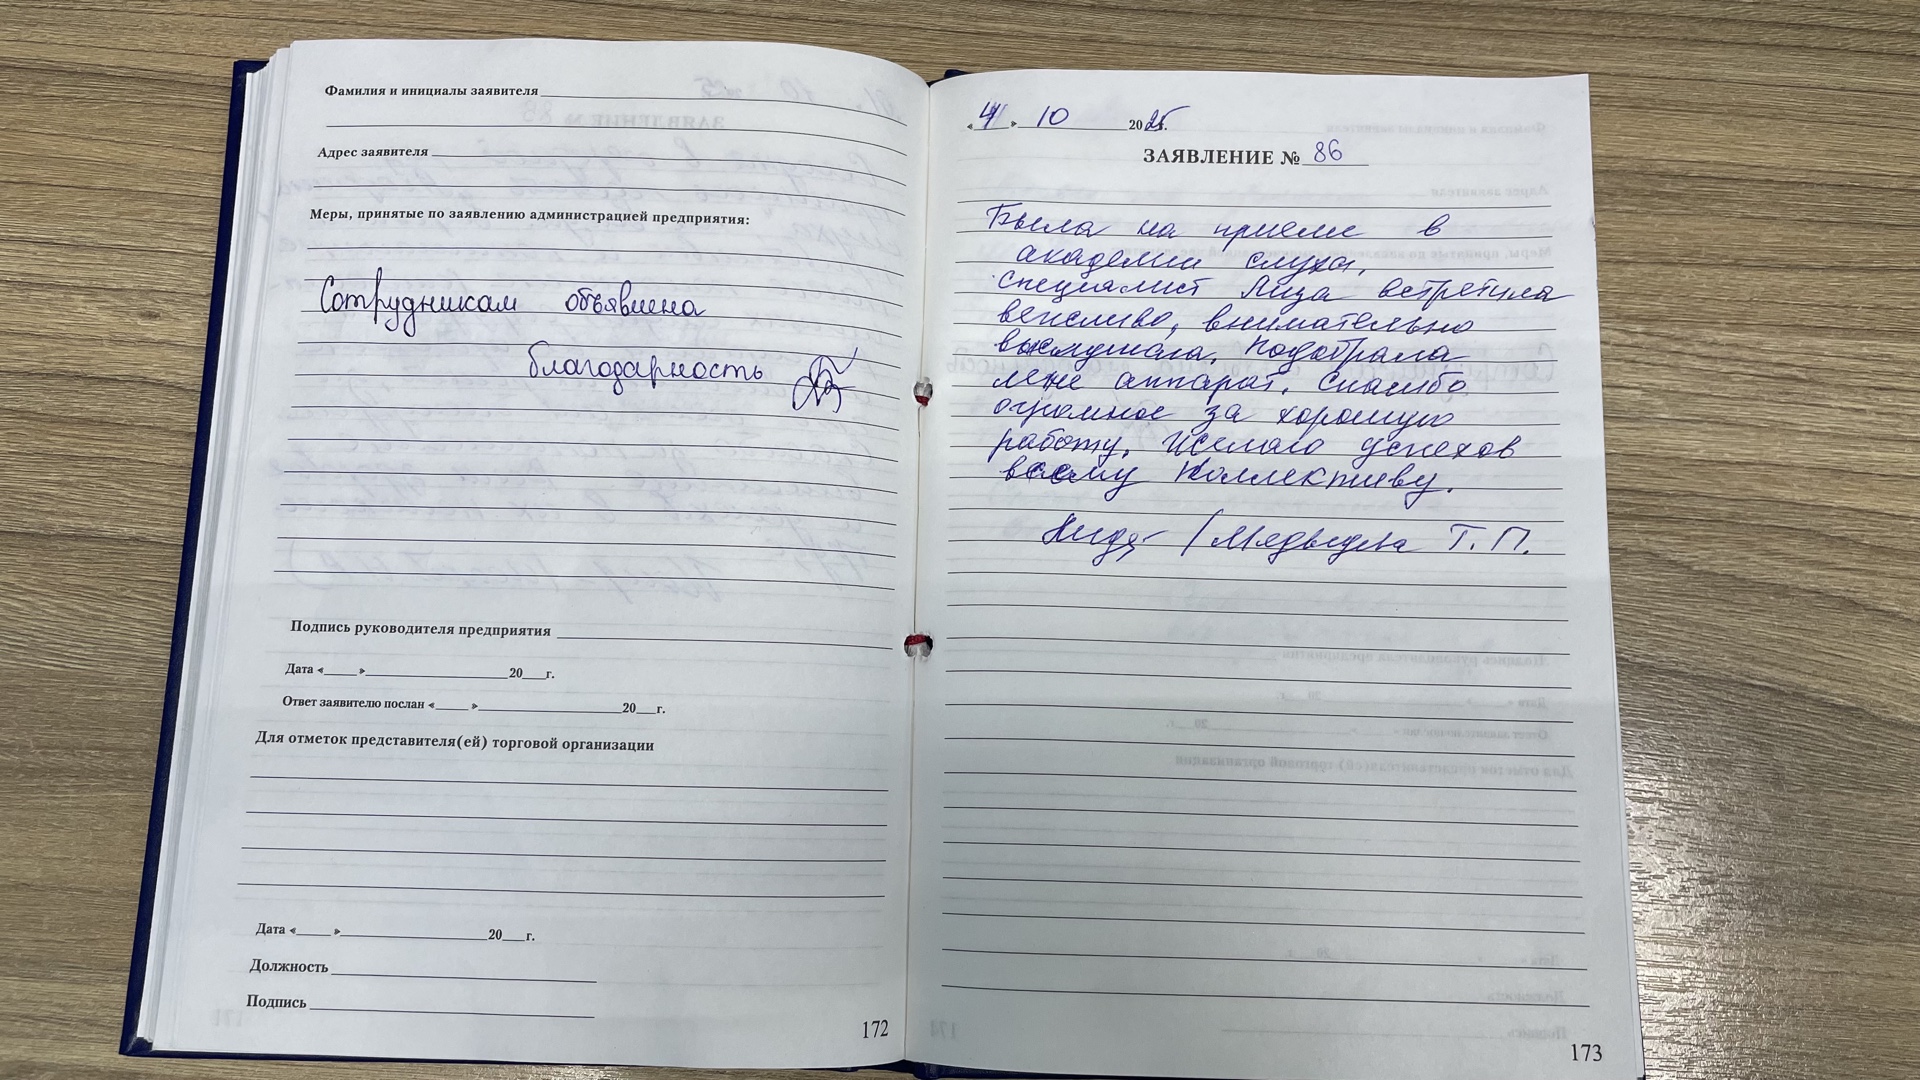 Фамилия и инициалы заявителя
Адрес заявителя
Меры, принятые по заявлению администрацией предприятия:
Сотрудникам объявлена
благодарность
Подпись руководителя предприятия
Дата «____»____________20___г.
Ответ заявителю послан «____»____________20___г.
Для отметок представителя(ей) торговой организации
Дата «____»____________20___г.
Должность
Подпись
172
«4» 10 2025г.
ЗАЯВЛЕНИЕ № 86
Была на приеме в
академии слуха.
Специалист Лиза встретила
вежливо, внимательно
выслушала, подобрала
мне аппарат. Спасибо
огромное за хорошую
работу. Желаю успехов
всему Коллективу.
Т.П.
173